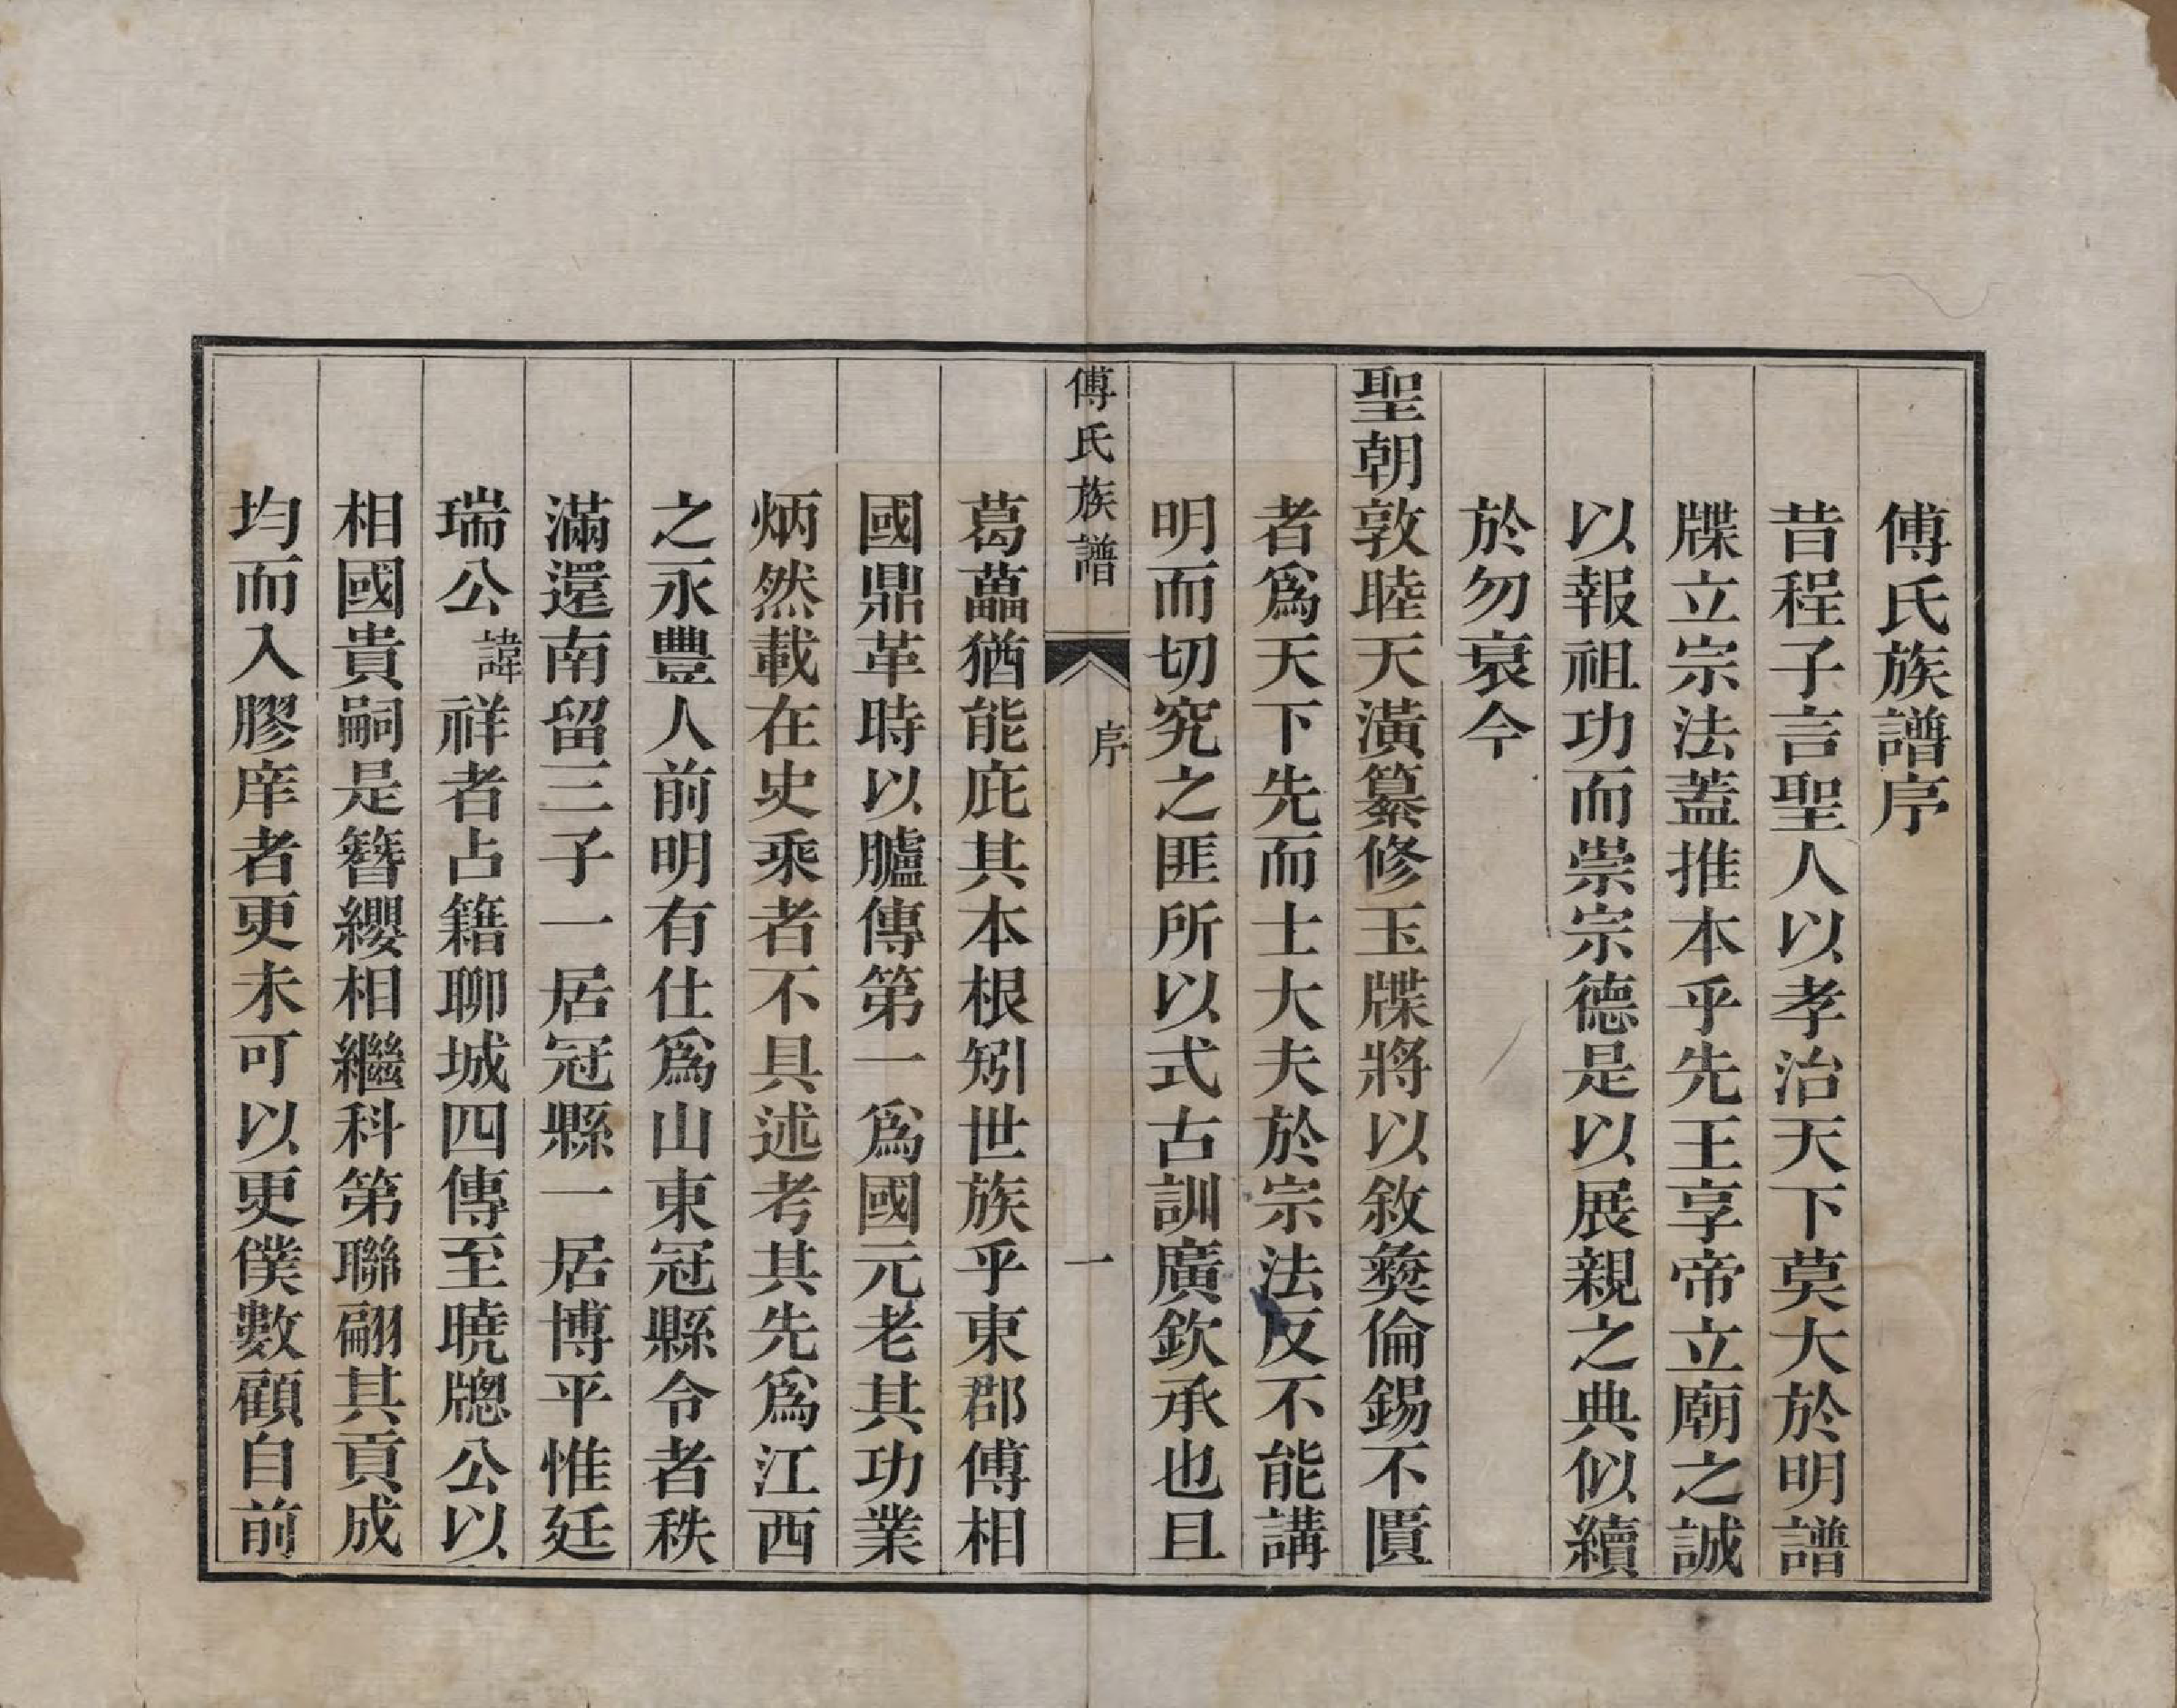 傅氏族譜序
昔程子言聖人以孝治天下莫大於明譜
牒立宗法蓋推本乎先王享帝立廟之誠
以報祖功而崇宗德是以展親之典似續
於勿衰今
聖朝敦睦天潢纂修玉牒將以敘彝倫錫不匱
者爲天下先而士大夫於宗法反不能講
明而切究之匪所以式古訓廣欽承也且
傅氏族譜
序
一
葛藟猶能庇其本根矧世族乎東郡傅相
國鼎革時以臚傳第一爲國元老其功業
炳然載在史乘者不具述考其先爲江西
之永豐人前明有仕爲山東冠縣令者秩
滿還南留三子一居冠縣一居博平惟廷
瑞公諱祥者占籍聊城四傳至曉牕公以
相國貴嗣是簪纓相繼科第聯翩其貢成
均而入膠庠者更未可以更僕數顧自前